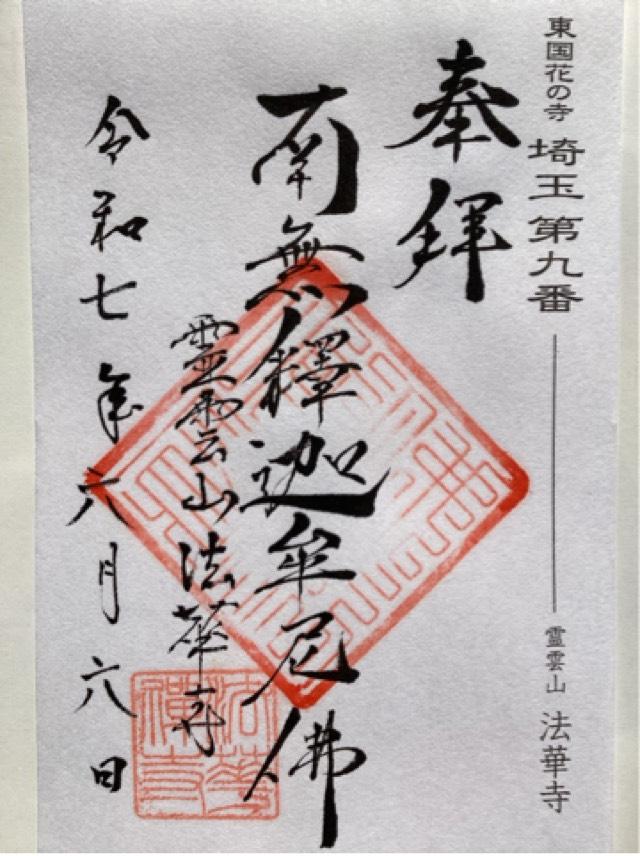 東国花の寺 埼玉第九番 霊雲山 法華寺
奉拝
南無釋迦牟尼佛
霊雲山法華寺
令和七年六月六日